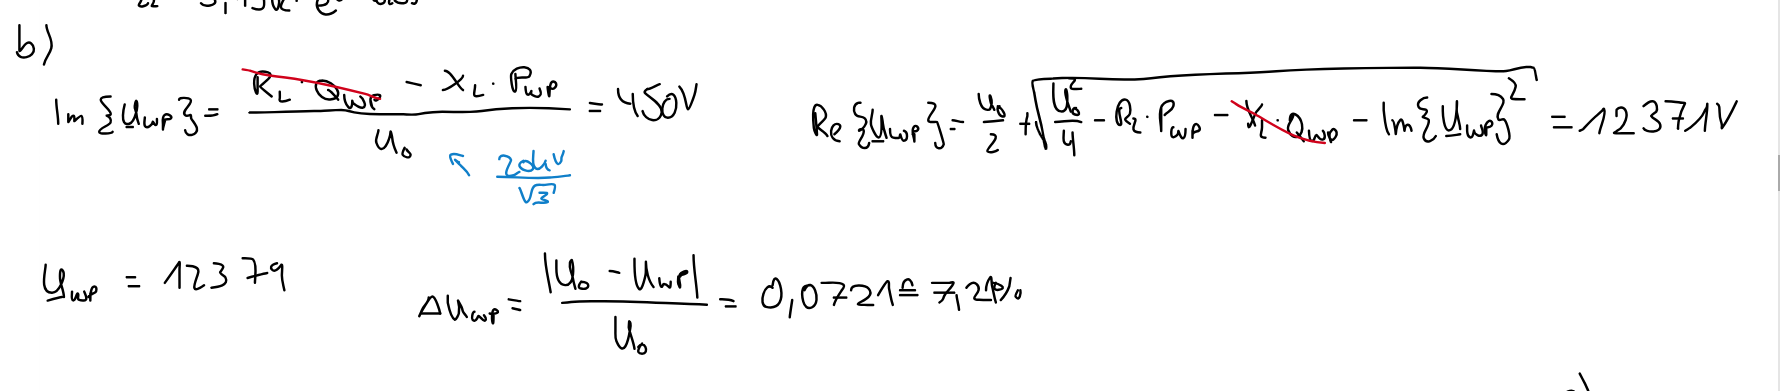 b)
Im {U̲_WP} = (R_L · Q_WP − X_L · P_WP) / U_0 = 450V
Re {U̲_WP} = U_0/2 + √(U_0²/4 − R_L · P_WP − X_L · Q_WP − Im{U̲_WP}²) = 12371V
20kV/√3
U̲_WP = 12379
ΔU_WP = |U_0 − U_WP| / U_0 = 0,0721 ≙ 7,21%